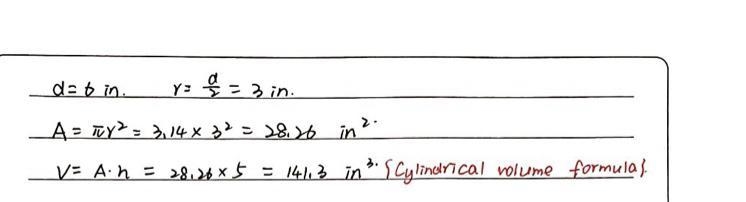 d = 6 in. r = d/2 = 3 in.
A = πr² = 3.14 × 3² = 28.26 in².
V = A·h = 28.26 × 5 = 141.3 in³. {Cylindrical volume formula}.